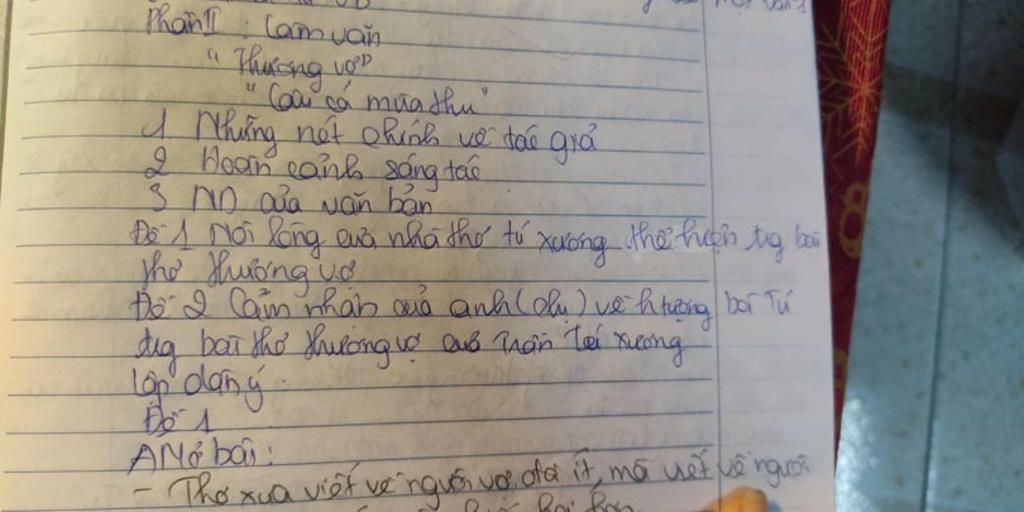 Phần II : Làm văn
" Thương vợ"
" Câu cá mùa thu"
1 Những nét chính về tác giả
2 Hoàn cảnh sáng tác
3 ND của văn bản
Đề 1 Nỗi lòng của nhà thơ tú xương thể hiện tng bài
thơ thương vợ
Đề 2 Cảm nhận của anh (chị) về htượng bà Tú
tng bài thơ thương vợ của Trần Tế Xương
lập dàn ý
Đề 1
A Mở bài :
- Thơ xưa viết về người vợ đã ít, mà viết về người